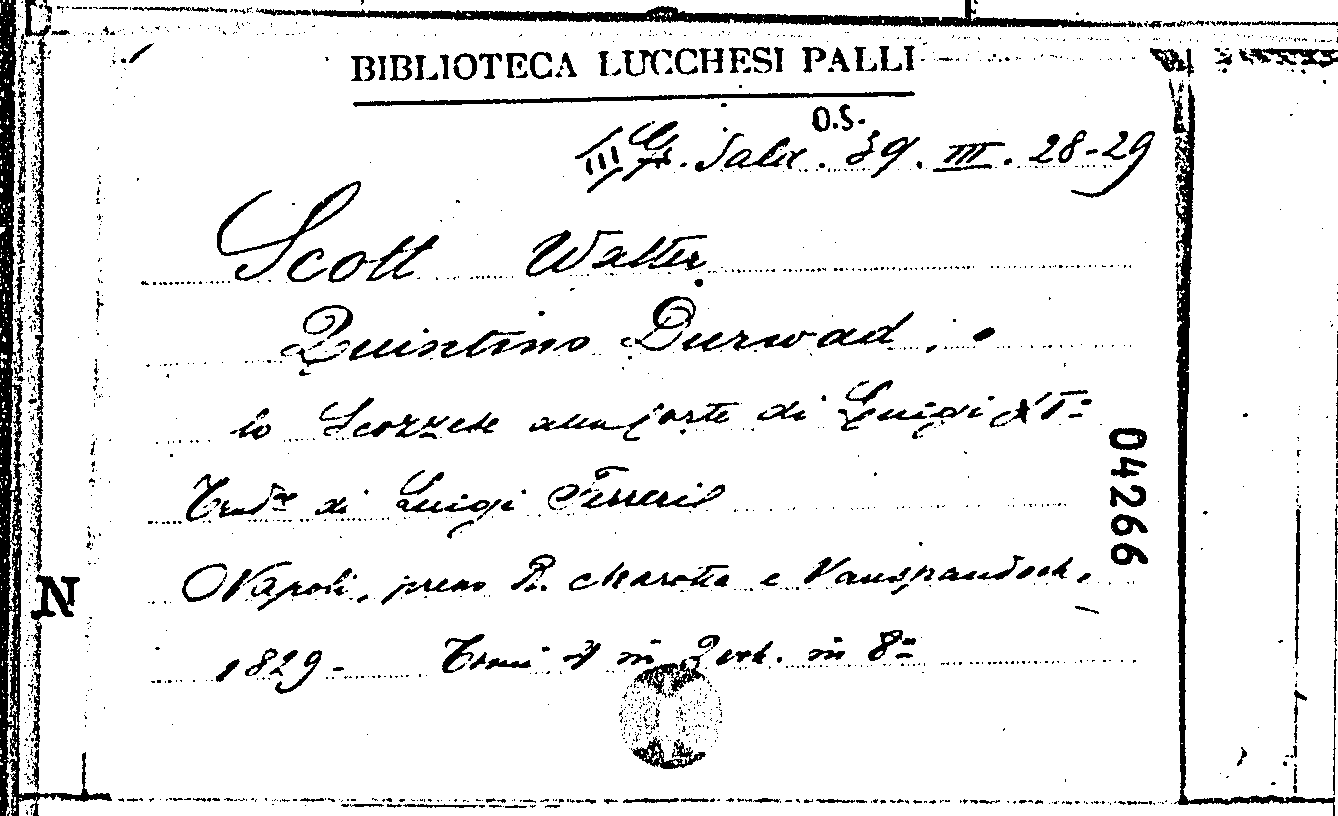 BIBLIOTECA LUCCHESI PALLI
O.S.
III Sala. 39. III. 28-29
Scott Walter
Quintino Durwad, o
lo Scozzese alla Corte di Luigi XI°
Trad.e di Luigi Ferreri
Napoli, presso R. Marotta e Vanspandoch,
1829- Tomi 4 in 2 vol. in 8°
04266
N